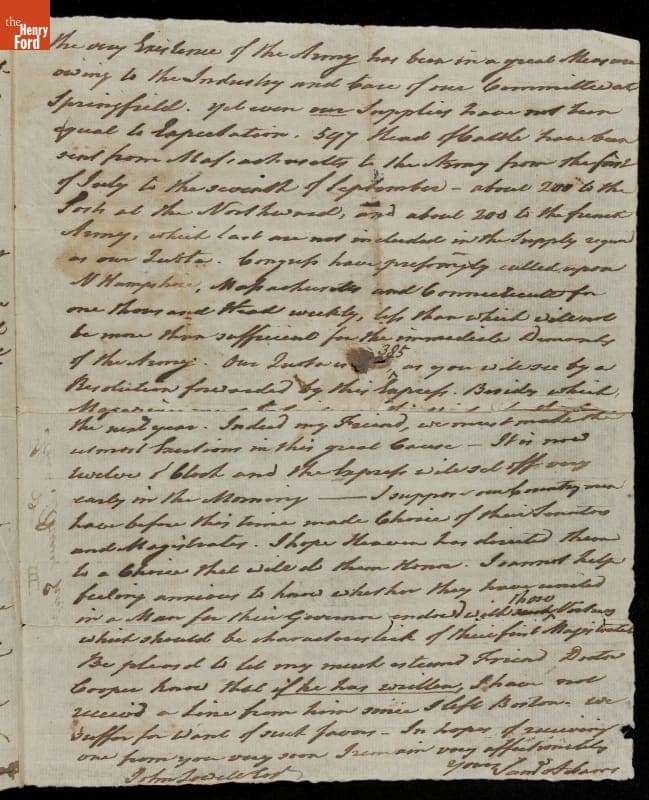 the Henry Ford
the very Existence of the Army has been in a great Measure
owing to the Industry and Care of our Committee at
Springfield. Yet even our Supplies have not been
equal to Expectation. 597 Head of Cattle have been
sent from Massachusetts to the Army from the first
of July to the seventh of September - about 200 to the
Posts at the Northward, and about 200 to the french
Army, which last are not included in the Supply requird
as our Quota. Congress have pressingly called upon
N Hampshire, Massachusetts and Connecticutt for
one thousand Head weekly, less than which will not
be more than sufficient for the immediate Demands
of the Army. Our Quota is 385 as you will see by a
Resolution forwarded by this Express. Besides which,
the next year. Indeed my Friend, we must make the
utmost Exertions in this great Cause - It is now
twelve o Clock and the Express will set off very
early in the Morning — I suppose our Country men
have before this time made Choice of their Senators
and Magistrates. I hope Heaven has directed them
to a Choice that will do them Honor. I cannot help
feeling anxious to know whether they have united
in a Man for their Governor endowd with those Virtues
which should be characteristick of their first Magistrate
Be pleasd to let my much esteemd Friend Doctor
Cooper know that if he has written, I have not
receivd a Line from him since I left Boston. We
suffer for Want of such favors - In hopes of receiving
one from you very soon I remain very affectionately
Yours
John Lovell Esqr
Saml Adams